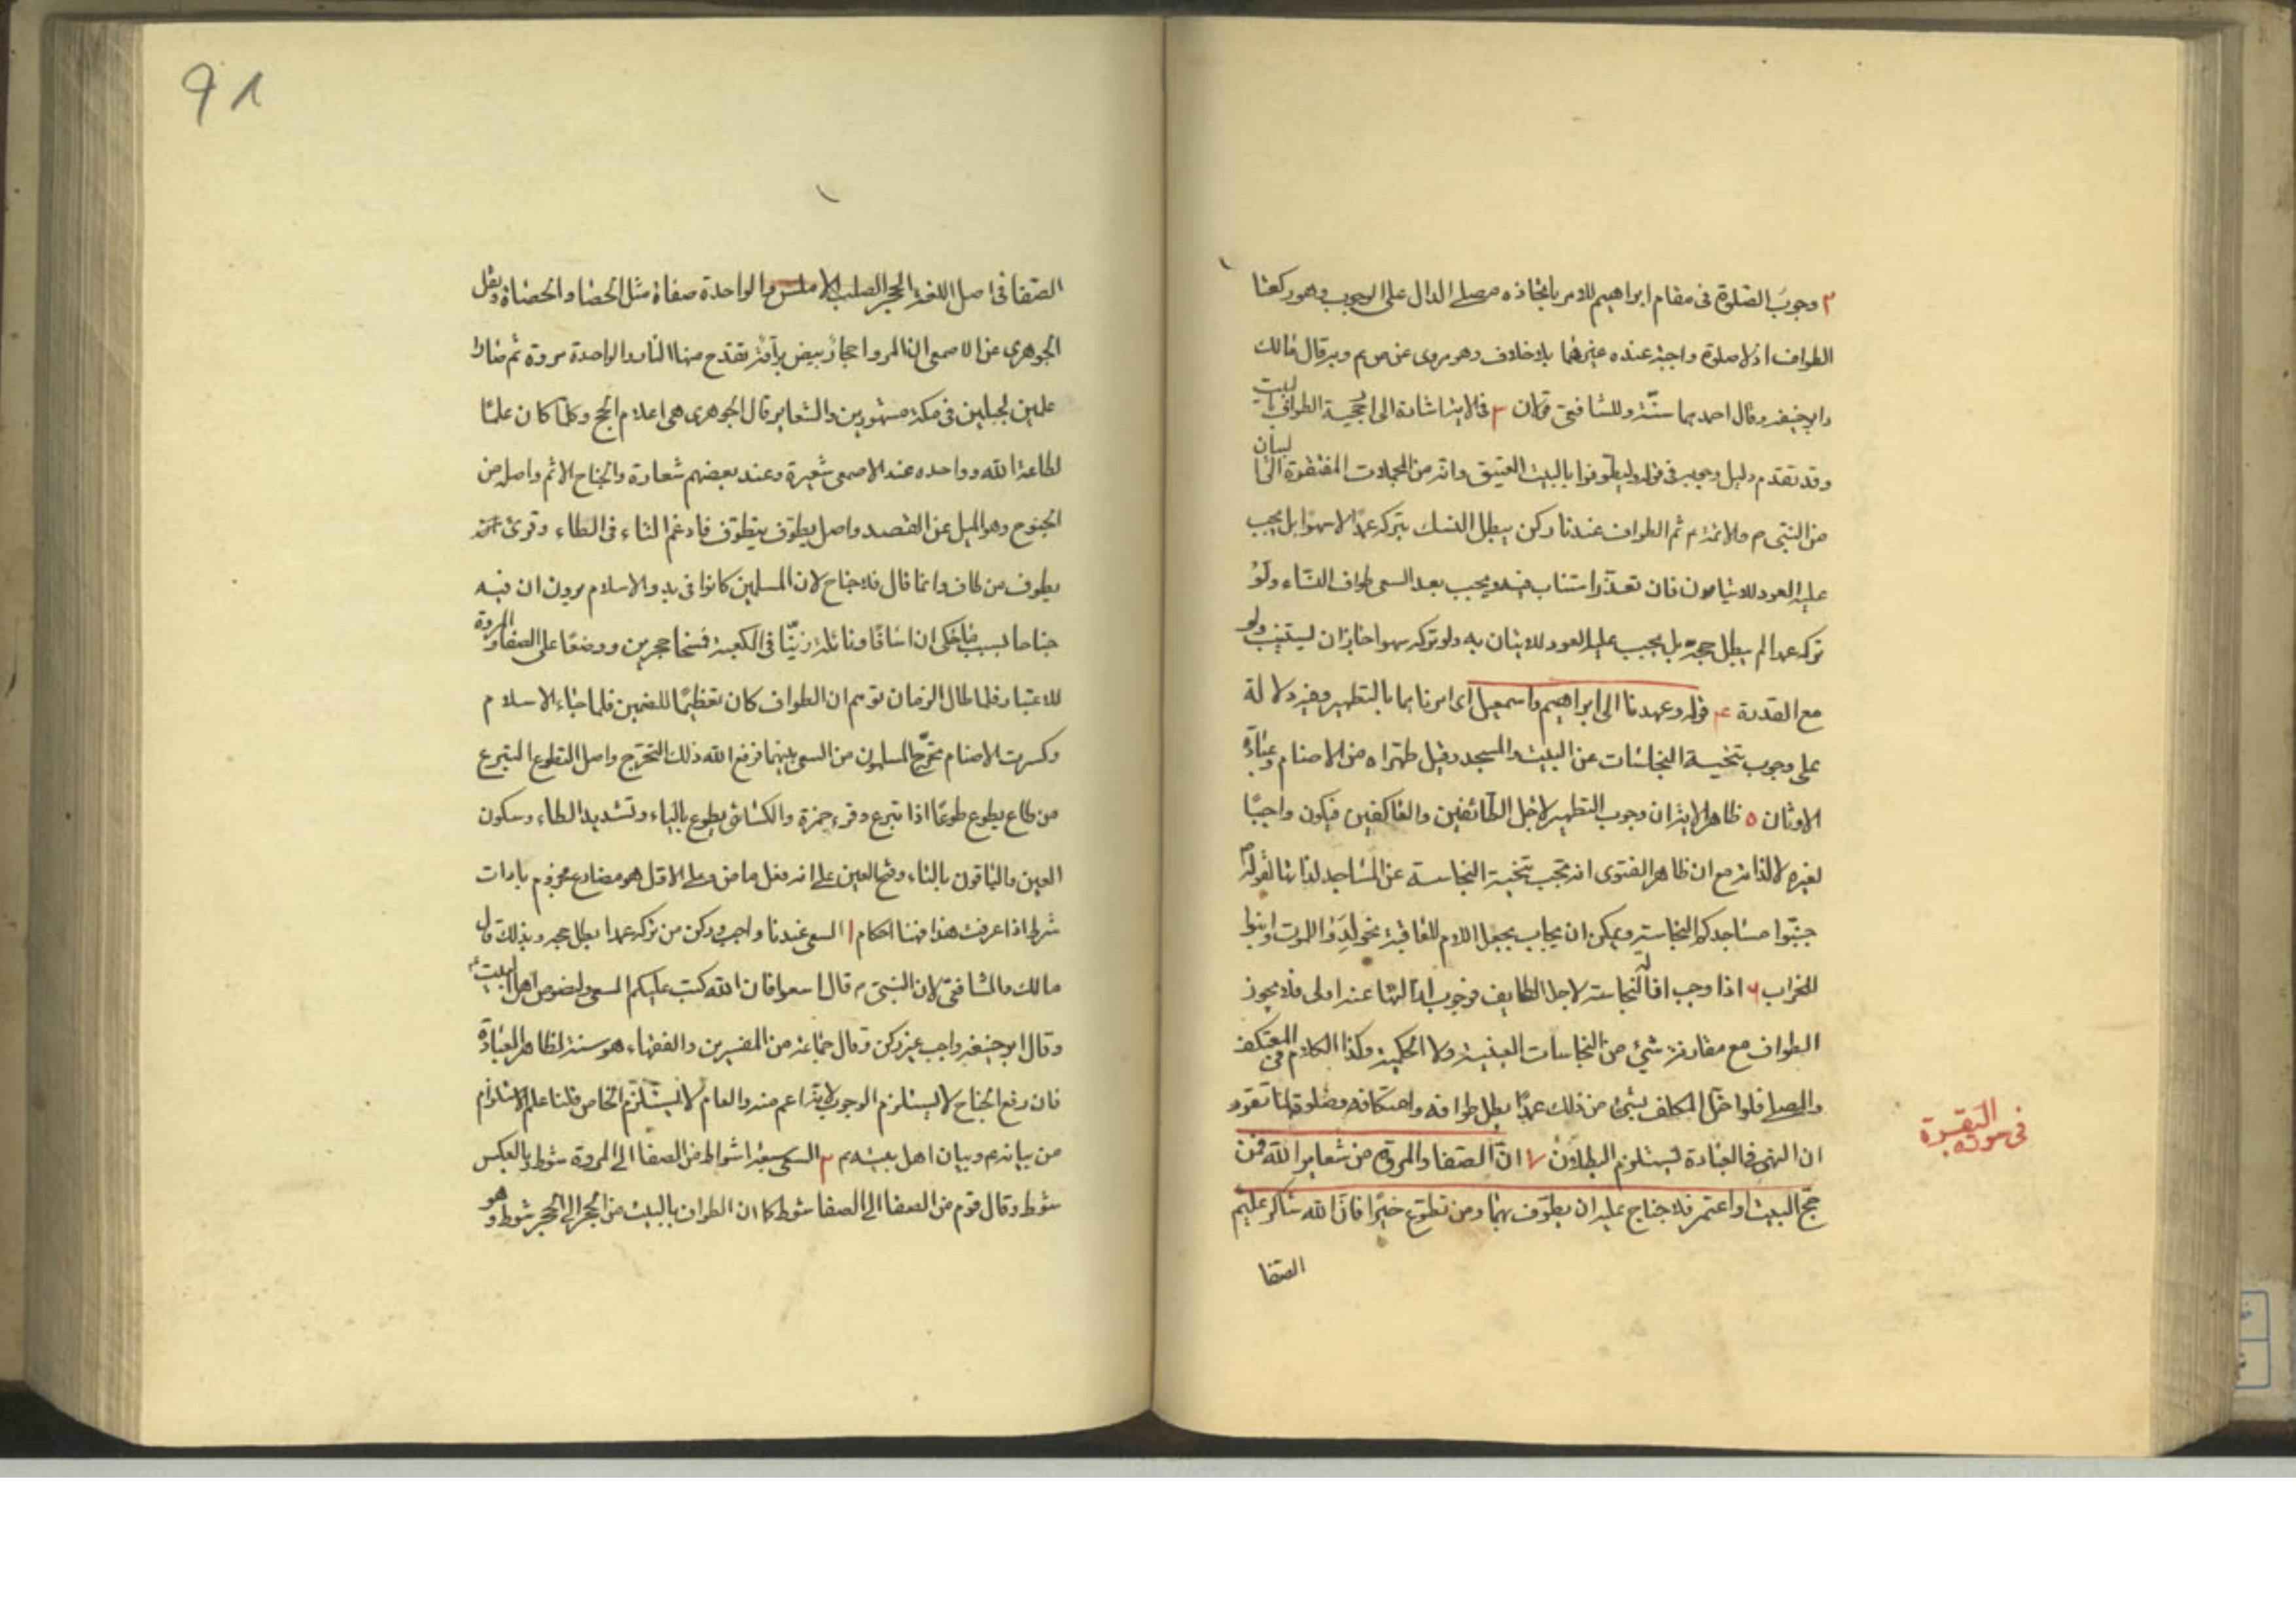 ٢ وجوب الصلوة فى مقام ابراهيم للامر باتخاذه مصلى الدال على الوجوب وهو ركعتا
الطواف اذ لا صلوة واجبة عنده غيرهما بلا خلاف وهو مروى عن ص م وبه قال مالك
وابو حنيفه وقال احمد بهما سنّة وللشافعى قولان ٣ فى الاية اشارة الى احجية الطواف بالبيت
وقد تقدم دليل وجوبه فى قوله وليطوفوا بالبيت العتيق وانه من المجملات المفتقرة الى البيان
من النبى ص والائمة م ثم الطواف عندنا ركن يبطل النسك بتركه عمدًا لا سهوًا بل يجب
عليه العود للاتيان فان تعذر استناب فيه ويجب بعد السعى طواف النساء ولو
تركه عمدا لم يبطل حجه بل يجب عليه العود للاتيان به ولو تركه سهوا جاز ان يستنيب ولو
مع القدرة ٤ قوله وعهدنا الى ابراهيم واسمعيل اى امرناهما بالتطهير وفيه دلالة
على وجوب تنحية النجاسات عن البيت والمسجد وقيل طهراه من الاصنام وعبادة
الاوثان ٥ ظاهر الاية ان وجوب التطهير لاجل الطائفين والعاكفين فيكون واجبًا
لغيره لا لذاته مع ان ظاهر الفتوى انه تجب تنحية النجاسة عن المساجد لذاتها لقوله ص
جنبوا مساجدكم النجاسة ويمكن ان يجاب بجعل اللام للعاقبة نحو لدوا للموت وابنوا
للخراب ٦ اذا وجب ازالة النجاسة لاجل الطايف فوجوب ازالتها عنه اولى فلا يجوز
الطواف مع مقارنة شئ من النجاسات العينية ولا الحكمية وكذا الكلام فى المعتكف
والمصلى فلو اخلّ المكلف بشئ من ذلك عمدًا بطل طوافه واعتكافه وصلوته لما تقرر
ان النهى فى العبادة يستلزم البطلان ٧ انّ الصفا والمروة من شعاير الله فمن
حجّ البيت او اعتمر فلا جناح عليه ان يطوّف بهما ومن تطوّع خيرًا فان الله شاكر عليم
الصفا
فى سورة البقرة
٩١
الصفا فى اصل اللغة الحجر الصلب الاملس والواحدة صفاة مثل الحصا والحصاة ونقل
الجوهرى عن الاصمعى ان المروا حجارة بيض براقة تقدح منها النار والواحدة مروة ثم صارا
علمين لجبلين فى مكة مشهورين والشعاير قال الجوهرى هى اعلام الحج وكلما كان علمًا
لطاعة الله وواحده عند الاصمعى شعيرة وعند بعضهم شعارة والجناح الاثم واصله من
الجنوح وهو الميل عن القصد واصل يطوف يتطوف فادغم التاء فى الطاء وقرئ
يطوف من طاف وانما قال فلا جناح لان المسلمين كانوا فى بدو الاسلام يرون ان فيه
جناحا بسبب ما حكى ان اسافًا ونائلة زنيّا فى الكعبة فمسخا حجرين ووضعًا على الصفا والمروة
للاعتبار فلما طال الزمان توهم ان الطواف كان تعظيمًا للصنمين فلما جاء الاسلام
وكسرت الاصنام تحرّج المسلمون من السعى بينهما فرفع الله ذلك التحرّج واصل التطوع التبرع
من طاع يطوع طوعًا اذا تبرع وقرء حمزة والكسائى يطوع بالياء وتشديد الطاء وسكون
العين والباقون بالتاء وفتح العين على انه فعل ماض وعلى الاول هو مضارع مجزوم بادات
شرط اذا عرفت هذا فهنا احكام ١ السعى عندنا واجب وركن من تركه عمدا بطل حجه وبذلك قال
مالك والشافعى لان النبى ص قال اسعوا فان الله كتب عليكم السعى ولنصوص اهل البيت ع
وقال ابو حنيفه واجب غير ركن وقال جماعة من المفسرين والفقهاء هو سنة لظاهر العبادة
فان رفع الجناح لا يستلزم الوجوب لانه اعم منه والعام لا يستلزم الخاص قلنا علم الاستلزام
من بيانه م وبيان اهل بيته م ٢ السعى سبعة اشواط من الصفا الى المروة شوط وبالعكس
شوط وقال قوم من الصفا الى الصفا شوط كما ان الطواف بالبيت من الحجر الى الحجر شوط وهو